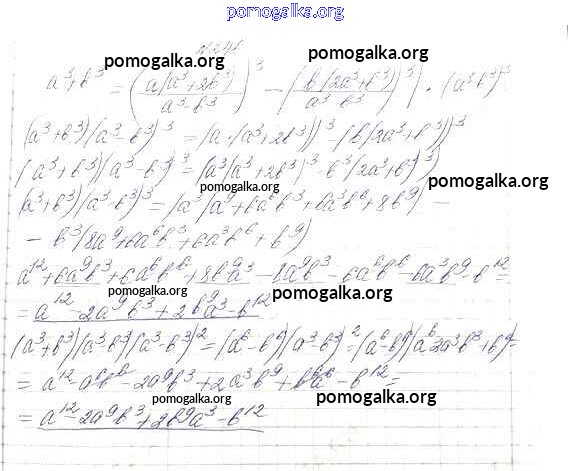 pomogalka.org
№ 248
pomogalka.org pomogalka.org
a³+b³ = (a(a³+2b³)/(a³-b³))³ - (b(2a³+b³)/(a³-b³))³ | · (a³-b³)³
pomogalka.org
(a³+b³)(a³-b³)³ = (a·(a³+2b³))³ - (b(2a³+b³))³
(a³+b³)(a³-b³)³ = (a³(a³+2b³)³ - b³(2a³+b³)³)
pomogalka.org pomogalka.org
(a³+b³)(a³-b³)³ = (a³(a⁹+6a⁶b³+6a³b⁶+8b⁹) -
- b³(8a⁹+6a⁶b³+6a³b⁶+b⁹)
a¹²+6a⁹b³+6a⁶b⁶+8b⁹a³-8a⁹b³-6a⁶b⁶-6a³b⁹-b¹²=
pomogalka.org pomogalka.org
= a¹²-2a⁹b³+2b⁹a³-b¹²
(a³+b³)(a³-b³)(a³-b³)² = (a⁶-b⁹)(a³-b³)² = (a⁶-b⁹)(a⁶-2a³b³+b⁹)=
= a¹²-a⁶b⁶-2a⁹b³+2a³b⁹+b⁶a⁶-b¹²=
pomogalka.org pomogalka.org
= a¹²-2a⁹b³+2b⁹a³-b¹²